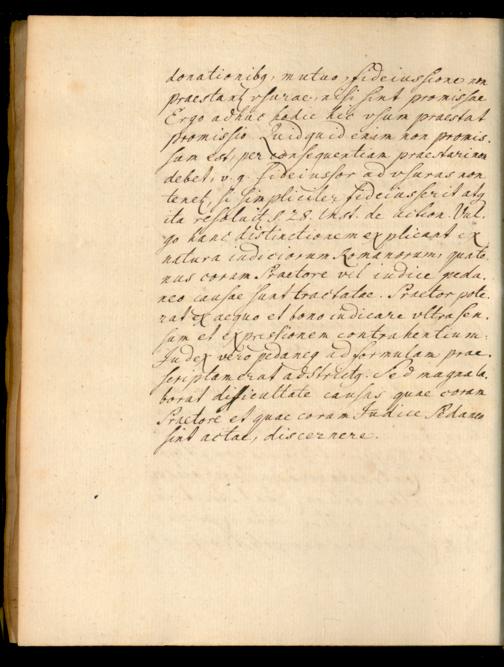 donationibq, mutuo, fideiussione non
praestantʒ vsurae, nisi sint promissae
Ergo adhuc hodie hic vsum praestat
promissio. Quidquid enim non promis-
sam est, per consequentiam praestari non
debet, v. g. fideiussor ad vsuras non
tenetʒ, si simpliciter fideiusserit atq
ita resoluitʒ § 28. Inst. de action. Vul-
go hanc distinctionem explicant ex
natura iudiciorum Romanorum, quate-
nus coram Praetore vel iudice peda-
neo causae sunt tractatae. Praetor pote-
rat ex aequo et bono iudicare vltra sen-
sam et expressionem contrahentium.
Iudex vero pedaneq ad formulam prae-
scriptam erat adstrictq. Sed magna la-
borat difficultate causas quae coram
Praetore et quae coram Iudice Pedaneo
sint actae, discernere.